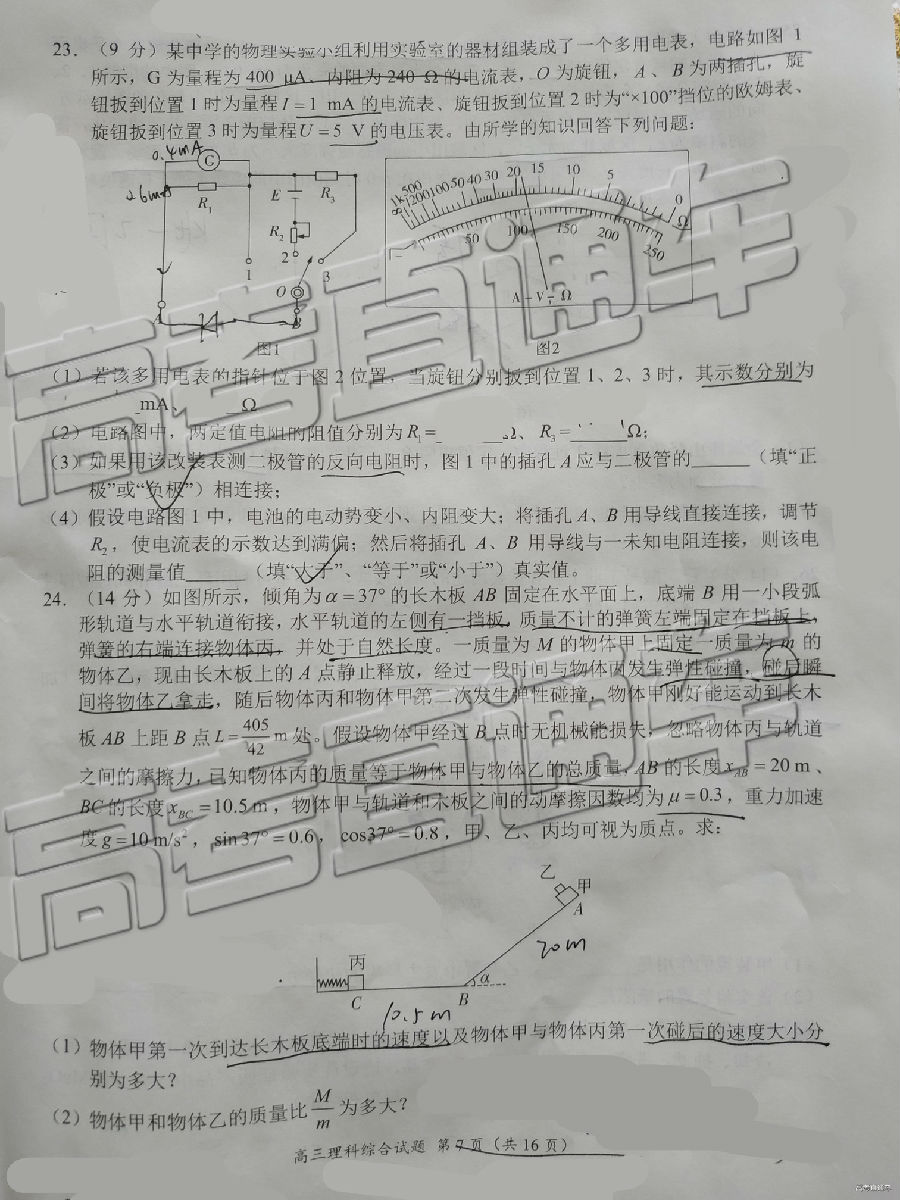 23. （9 分）某中学的物理实验小组利用实验室的器材组装成了一个多用电表，电路如图 1
所示，G 为量程为 400 μA、内阻为 240 Ω 的电流表，O 为旋钮，A、B 为两插孔，旋
钮扳到位置 1 时为量程 I=1 mA 的电流表、旋钮扳到位置 2 时为“×100”挡位的欧姆表、
旋钮扳到位置 3 时为量程 U=5 V 的电压表。由所学的知识回答下列问题：
0.4mA
G
R₁
E
R₃
R₂
1
2
3
O
A
B
图1
∞ 1k 500 200 100 50 40 30 20 15 10 5 0
Ω
50 100 150 200 250
A－V－Ω
图2
（1）若该多用电表的指针位于图 2 位置，当旋钮分别扳到位置 1、2、3 时，其示数分别为
mA、 Ω
（2）电路图中，两定值电阻的阻值分别为 R₁=______Ω、R₃=______Ω；
（3）如果用该改装表测二极管的反向电阻时，图 1 中的插孔 A 应与二极管的______（填“正
极”或“负极”）相连接；
（4）假设电路图 1 中，电池的电动势变小、内阻变大；将插孔 A、B 用导线直接连接，调节
R₂，使电流表的示数达到满偏；然后将插孔 A、B 用导线与一未知电阻连接，则该电
阻的测量值______（填“大于”、“等于”或“小于”）真实值。
24. （14 分）如图所示，倾角为 α=37° 的长木板 AB 固定在水平面上，底端 B 用一小段弧
形轨道与水平轨道衔接，水平轨道的左侧有一挡板，质量不计的弹簧左端固定在挡板上，
弹簧的右端连接物体丙，并处于自然长度。一质量为 M 的物体甲上固定一质量为 m 的
物体乙，现由长木板上的 A 点静止释放，经过一段时间与物体丙发生弹性碰撞，碰后瞬
间将物体乙拿走，随后物体丙和物体甲第二次发生弹性碰撞，物体甲刚好能运动到长木
板 AB 上距 B 点 L=405/42 m 处。假设物体甲经过 B 点时无机械能损失，忽略物体丙与轨道
之间的摩擦力，已知物体丙的质量等于物体甲与物体乙的总质量，AB 的长度 x_AB=20 m、
BC 的长度 x_BC=10.5 m，物体甲与轨道和木板之间的动摩擦因数均为 μ=0.3，重力加速
度 g=10 m/s²，sin37°=0.6，cos37°=0.8，甲、乙、丙均可视为质点。求：
乙
甲
A
20m
丙
C
B
α
10.5m
（1）物体甲第一次到达长木板底端时的速度以及物体甲与物体丙第一次碰后的速度大小分
别为多大？
（2）物体甲和物体乙的质量比 M/m 为多大？
高三理科综合试题 第 7 页（共 16 页）
高考直通车
高考直通车